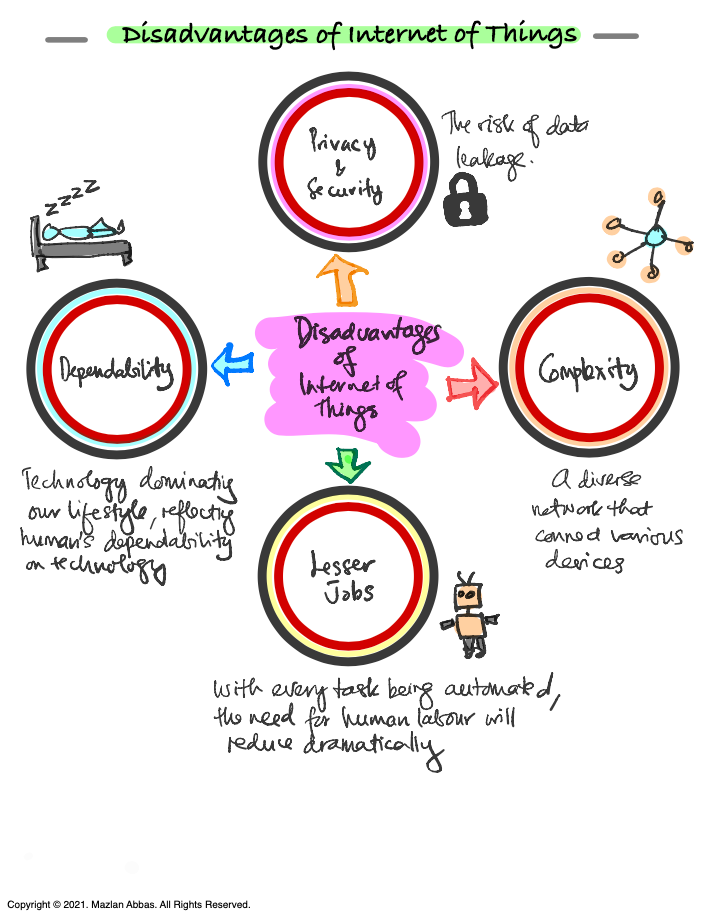 Disadvantages of Internet of Things
Privacy
&
Security
The risk of data
leakage.
zzzz
Dependability
Disadvantages
of
Internet of
Things
Complexity
Technology dominating
our lifestyle, reflecting
human's dependability
on technology
A diverse
network that
connect various
devices
Lesser
Jobs
With every task being automated,
the need for human labour will
reduce dramatically
Copyright © 2021. Mazlan Abbas. All Rights Reserved.